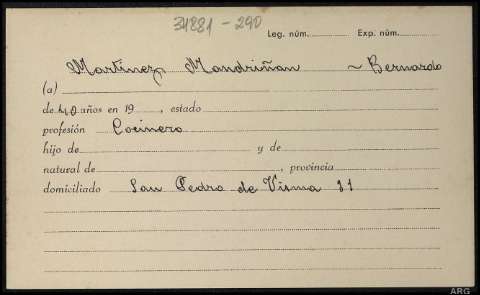 34881 - 290
Leg. núm. Exp. núm.
Martínez Mandriñan ~ Bernardo
(a)
de 40 años en 19 , estado
profesión Cocinero
hijo de y de
natural de , provincia
domiciliado San Pedro de Visma 11
ARG